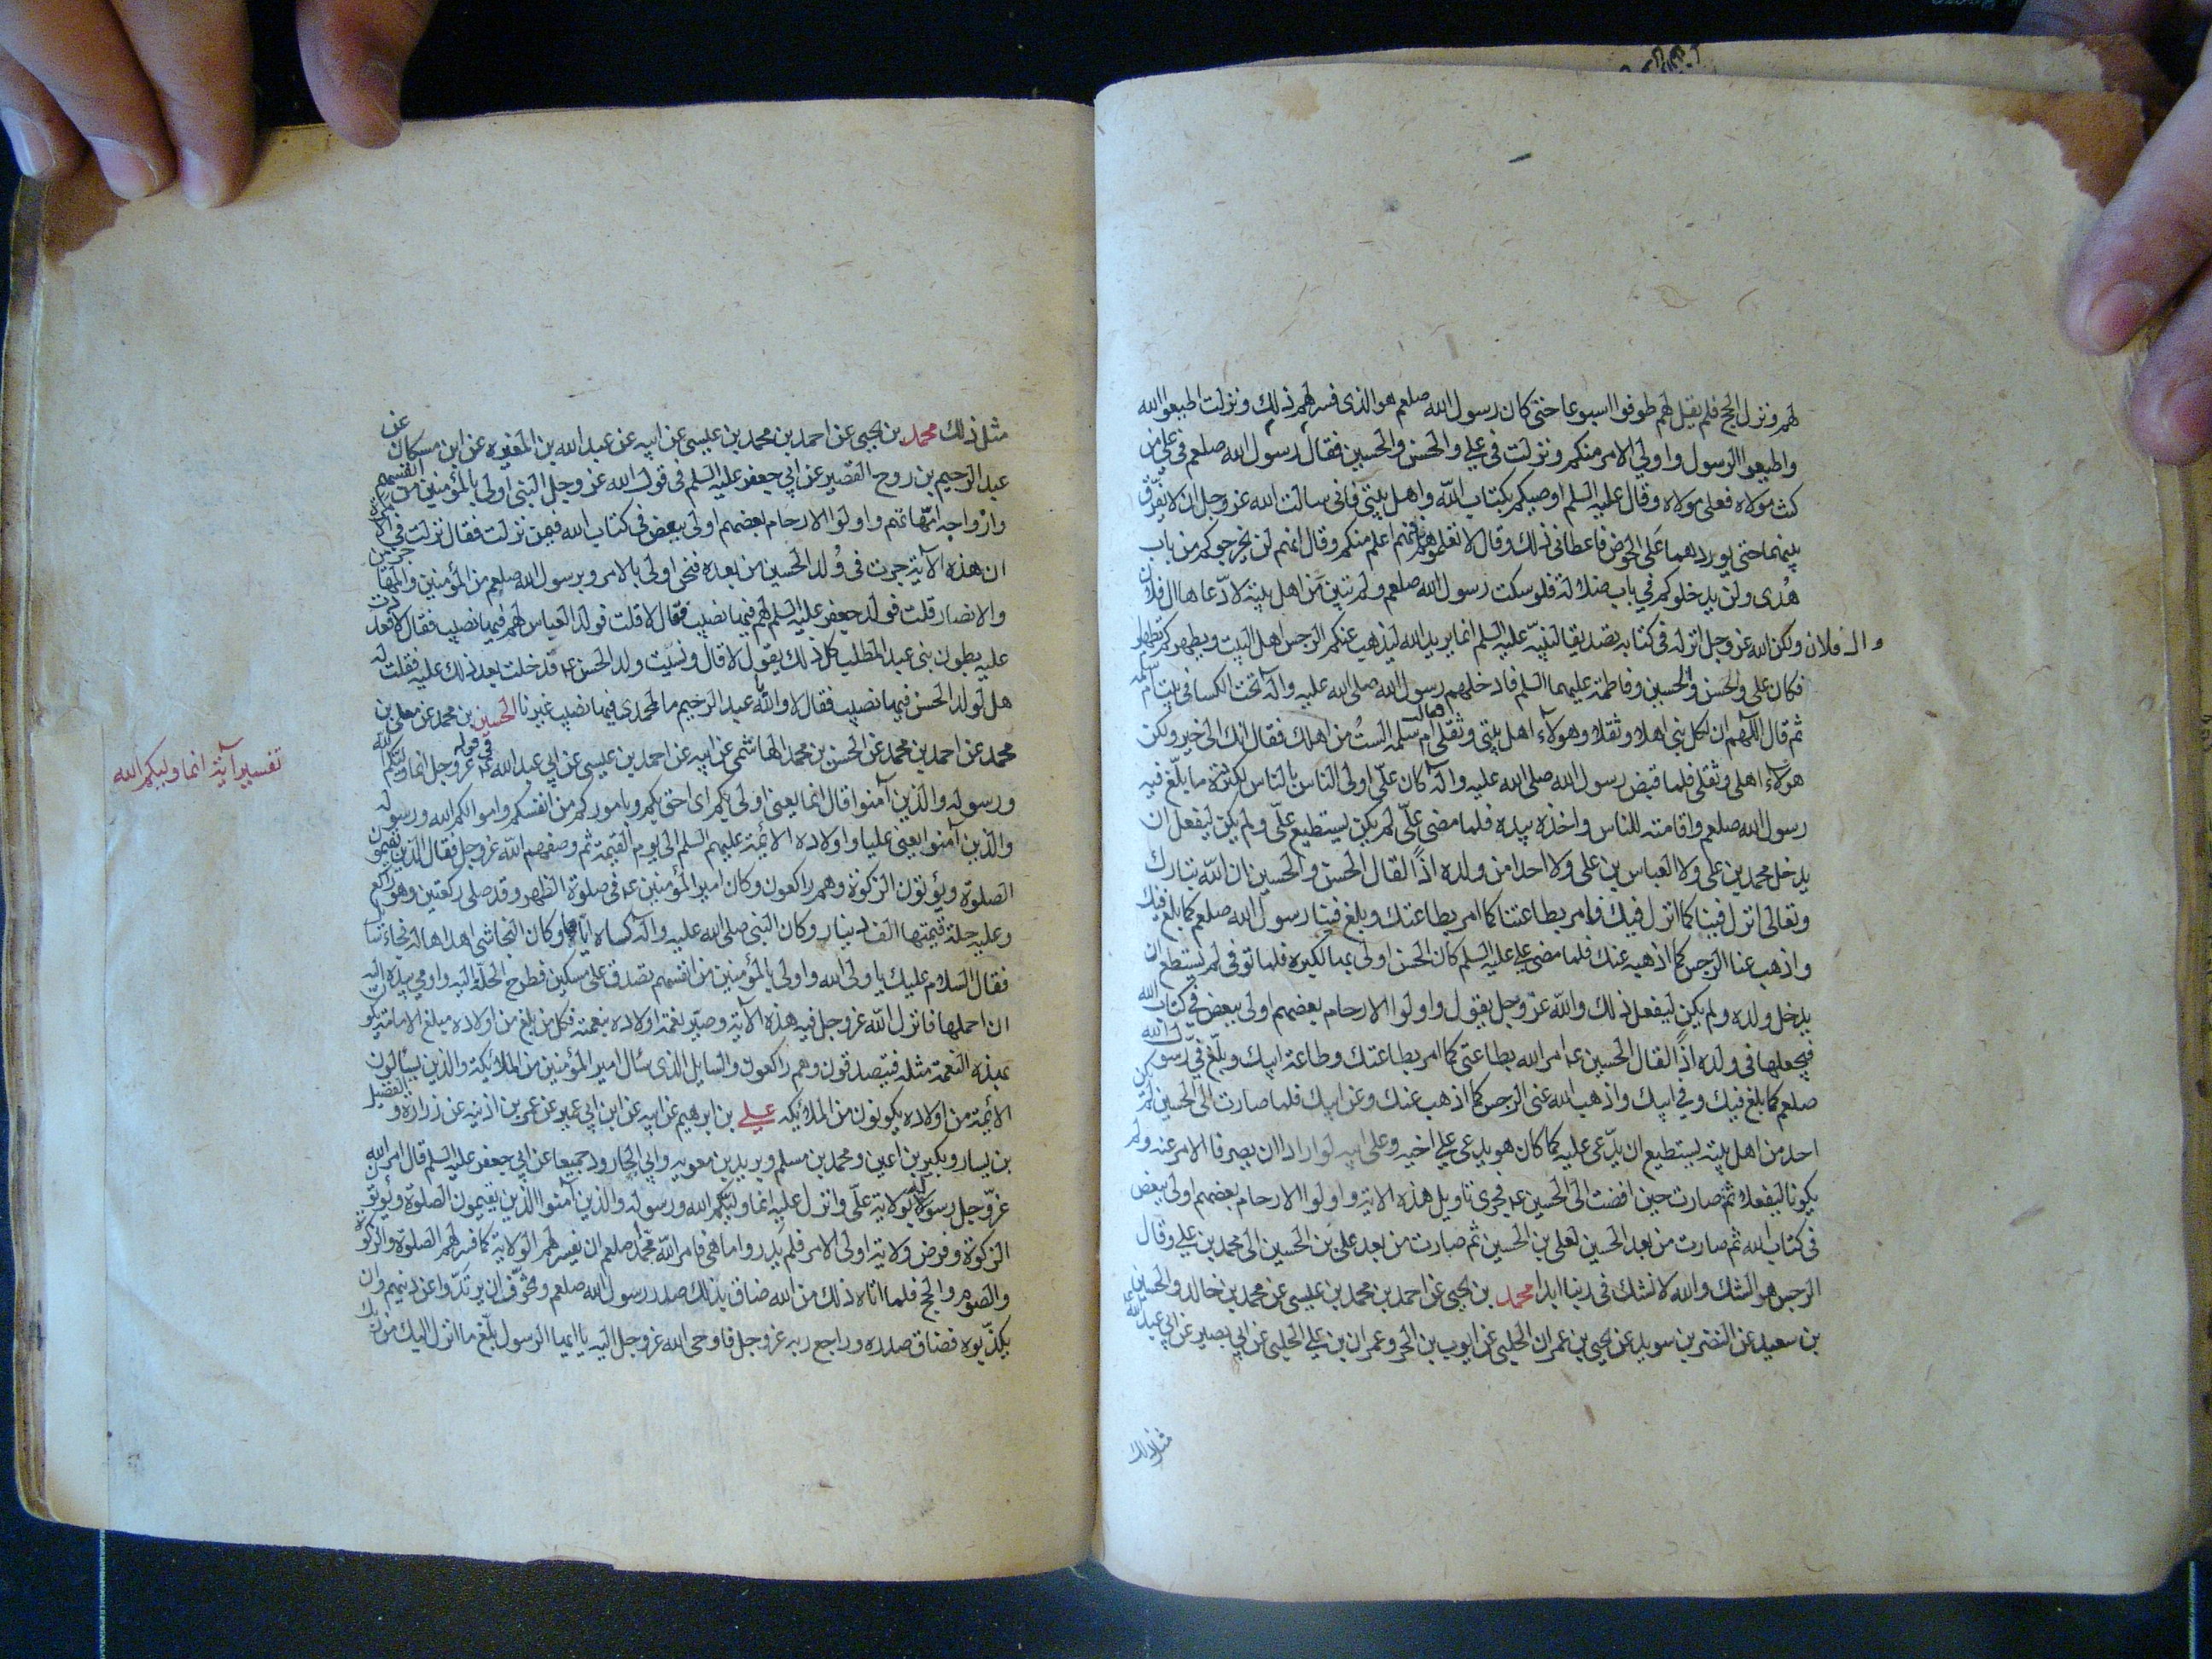 لهم ونزل الحج فلم يقل لهم طوفوا اسبوعا حتى كان رسول الله صلعم هو الذى فسر لهم ذلك ونزلت اطيعوا الله
واطيعوا الرسول واولي الامر منكم ونزلت في علي والحسن والحسين فقال رسول الله صلعم في علي من
كنت مولاه فعلى مولاه وقال عليه السلم اوصيكم بكتاب الله واهل بيتي فانى سالت الله عز وجل ان لا يفرق
بينهما حتى يوردهما على الحوض فاعطانى ذلك وقال لا تعلموهم فانهم اعلم منكم وقال انهم لن يخرجوكم من باب
هدى ولن يدخلوكم في باب ضلالة فلو سكت رسول الله صلعم ولم يبين من اهل بيته لادعاها ال فلان
وال فلان ولكن الله عز وجل انزله فى كتابه تصديقا لنبيه عليه السلم انما يريد الله ليذهب عنكم الرجس اهل البيت ويطهركم تطهيرا
فكان على والحسن والحسين وفاطمة عليهما السلم فادخلهم رسول الله صلى الله عليه وآله تحت الكسا فى بيت ام سلمه
ثم قال اللهم ان لكل نبى اهلا وثقلا وهولاء اهل بيتى وثقلى فقالت ام سلمه الست من اهلك فقال انك الى خير ولكن
هولاء اهلى وثقلى فلما قبض رسول الله صلى الله عليه وآله كان على اولى الناس بالناس لكثرة ما بلغ فيه
رسول الله صلعم واقامته للناس واخذه بيده فلما مضى على لم يكن يستطيع على ولم يكن ليفعل ان
يدخل محمد بن على ولا العباس بن على ولا احدا من ولده اذا لقال الحسن والحسين ان الله تبارك
وتعالى انزل فينا كما انزل فيك وامر بطاعتنا كما امر بطاعتك وبلغ فينا رسول الله صلعم كما بلغ فيك
واذهب عنا الرجس كما اذهبه عنك فلما مضى علي عليه السلم كان الحسن اولى بها لكبره فلما توفى لم يستطع ان
يدخل ولده ولم يكن ليفعل ذلك والله عز وجل يقول واولوا الارحام بعضهم اولى ببعض في كتاب الله
فيجعلها فى ولده اذا لقال الحسين ع امر الله بطاعتى كما امر بطاعتك وطاعة ابيك وبلغ في رسول الله
صلعم كما بلغ فيك وفي ابيك واذهب الله عنى الرجس كما اذهب عنك وعن ابيك فلما صارت الى الحسين لم يكن
احد من اهل بيته يستطيع ان يدعى عليه كما كان هو يدعى علي اخيه وعلى ابيه لو ارادا ان يصرفا الامر عنه ولم
يكونا ليفعلا ثم صارت حين افضت الى الحسين ع فجرى تاويل هذه الاية واولوا الارحام بعضهم اولى ببعض
فى كتاب الله ثم صارت من بعد الحسين لعلى بن الحسين ثم صارت من بعد على بن الحسين الى محمد بن علي وقال
الرجس هو الشك والله لا نشك فى ربنا ابدا محمد بن يحيى عن احمد بن محمد بن عيسى عن محمد بن خالد والحسين
بن سعيد عن النضر بن سويد عن يحيى بن عمران الحلبى عن ايوب بن الحر وعمران بن علي الحلبى عن ابي بصير عن ابي عبد الله ع
مثل ذلك
مثل ذلك محمد بن يحيى عن احمد بن محمد بن عيسى عن ابيه عن عبد الله بن المغيره عن ابن مسكان عن
عبد الرحيم بن روح القصير عن ابي جعفر عليه السلم فى قول الله عز وجل النبى اولى بالمؤمنين من انفسهم
وازواجه امهاتهم واولوا الارحام بعضهم اولى ببعض فى كتاب الله فيمن نزلت فقال نزلت فى الامرة
ان هذه الآية جرت فى ولد الحسين من بعده فنحن اولى بالامر وبرسول الله صلعم من المؤمنين والمهاجرين
والانصار قلت فولد جعفر عليه السلم لهم فيها نصيب فقال لا قلت فولد العباس لهم فيها نصيب فقال لا فعددت
عليه بطون بنى عبد المطلب كل ذلك يقول لا قال ونسيت ولد الحسن ع فدخلت بعد ذلك عليه فقلت له
هل لولد الحسن فيها نصيب فقال لا والله يا عبد الرحيم ما لمحمدى فيها نصيب غيرنا الحسين بن محمد عن معلى بن
محمد عن احمد بن محمد عن الحسن بن محمد الهاشمى عن ابيه عن احمد بن عيسى عن ابي عبد الله ع فى قوله عز وجل انما وليكم الله
تفسير آية انما وليكم الله
ورسوله والذين آمنوا قال انما يعنى اولى بكم اى احق بكم وباموركم من انفسكم واموالكم الله ورسوله
والذين آمنوا يعنى عليا واولاده الائمة عليهم السلم الى يوم القيمة ثم وصفهم الله عز وجل فقال الذين يقيمون
الصلوة ويؤتون الزكوة وهم راكعون وكان امير المؤمنين ع فى صلوة الظهر وقد صلى ركعتين وهو راكع
وعليه حلة قيمتها الف دينار وكان النبى صلى الله عليه وآله كساه اياها وكان النجاشى اهداها له فجاء سائل
فقال السلام عليك يا ولى الله واولى بالمؤمنين من انفسهم تصدق على مسكين فطرح الحلة اليه واومى بيده اليه
ان احملها فانزل الله عز وجل فيه هذه الاية وصير نعمة اولاده بنعمته فكل من بلغ من اولاده مبلغ الامامة يكون
بهذه النعمة مثله فيتصدقون وهم راكعون والسايل الذى سأل امير المؤمنين من الملائكة والذين يسألون
الائمة من اولاده يكونون من الملائكه علي بن ابرهيم عن ابيه عن ابن ابي عمير عن عمر بن اذينه عن زرارة والفضيل
بن يسار وبكير بن اعين ومحمد بن مسلم وبريد بن معويه وابي الجارود جميعا عن ابي جعفر عليه السلم قال امر الله
عز وجل رسوله بولاية على وانزل عليه انما وليكم الله ورسوله والذين آمنوا الذين يقيمون الصلوة ويؤتون
الزكوة وفرض ولاية اولى الامر فلم يدروا ما هى فامر الله محمدا صلعم ان يفسر لهم الولاية كما فسر لهم الصلوة والزكوة
والصوم والحج فلما اتاه ذلك من الله ضاق بذلك صدر رسول الله صلعم وتخوف ان يرتدوا عن دينهم وان
يكذبوه فضاق صدره وراجع ربه عز وجل فاوحى الله عز وجل اليه يا ايها الرسول بلغ ما انزل اليك من ربك